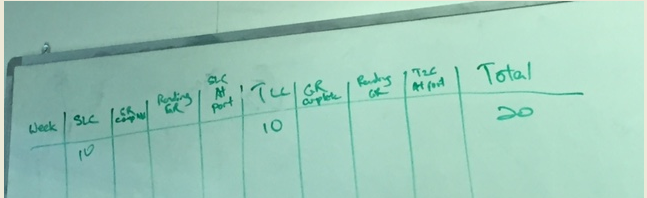 Week SLC GR complete Pending GR SLC At port TLC GR complete Pending GR TLC At port Total
10 10 20